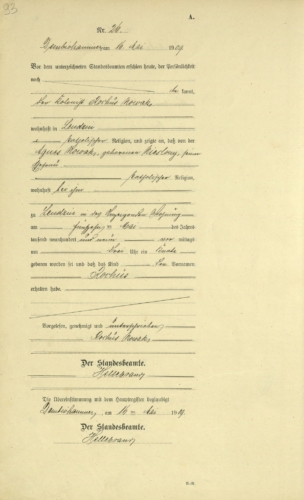 93
A.
Nr. 26.
am 16. Mai 1909
Vor dem unterzeichneten Standesbeamten erschien heute, der Persönlichkeit
nach
kannt,
der Kolonist Rochus Nowak
wohnhaft in Zendrin
katholischer Religion, und zeigte an, daß von der
Agnes Nowak, geborenen seiner
Ehefrau
katholischer Religion,
wohnhaft bei ihm
zu Zendrin in der Wohnung
am fünfzehnten Mai des Jahres
tausend neunhundert und neun vor mittags
um Uhr ein Knabe
geboren worden sei und daß das Kind den Vornamen
Rochus
erhalten habe.
Vorgelesen, genehmigt und unterschrieben
Rochus Nowak
Der Standesbeamte.
Hillebrand
Die Übereinstimmung mit dem Hauptregister beglaubigt
am 16. ten Mai 1909.
Der Standesbeamte.
Hillebrand